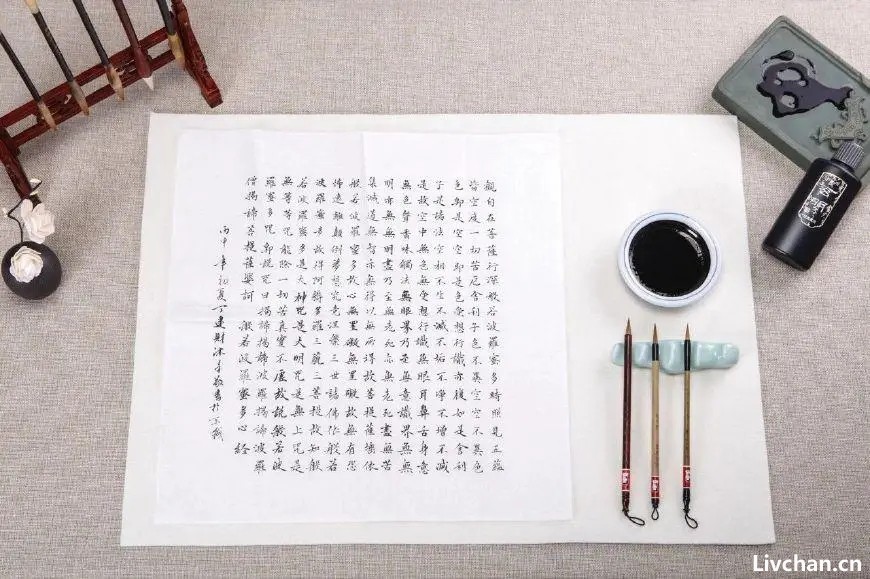 觀自在菩薩行深般若波羅蜜多時照見五蘊
皆空度一切苦厄舍利子色不異空空不異色
色即是空空即是色受想行識亦復如是舍利
子是諸法空相不生不滅不垢不淨不增不減
是故空中無色無受想行識無眼耳鼻舌身意
無色聲香味觸法無眼界乃至無意識界無無
明亦無無明盡乃至無老死亦無老死盡無苦
集滅道無智亦無得以無所得故菩提薩埵依
般若波羅蜜多故心無罣礙無罣礙故無有恐
怖遠離顛倒夢想究竟涅槃三世諸佛依般若
波羅蜜多故得阿耨多羅三藐三菩提故知般
若波羅蜜多是大神咒是大明咒是無上咒是
無等等咒能除一切苦真實不虛故說般若波
羅蜜多咒即說咒曰揭諦揭諦波羅揭諦波羅
僧揭諦菩提薩婆訶 般若波羅蜜多心經
丙申年初夏丁建財沐手敬書於
Livchan.cn